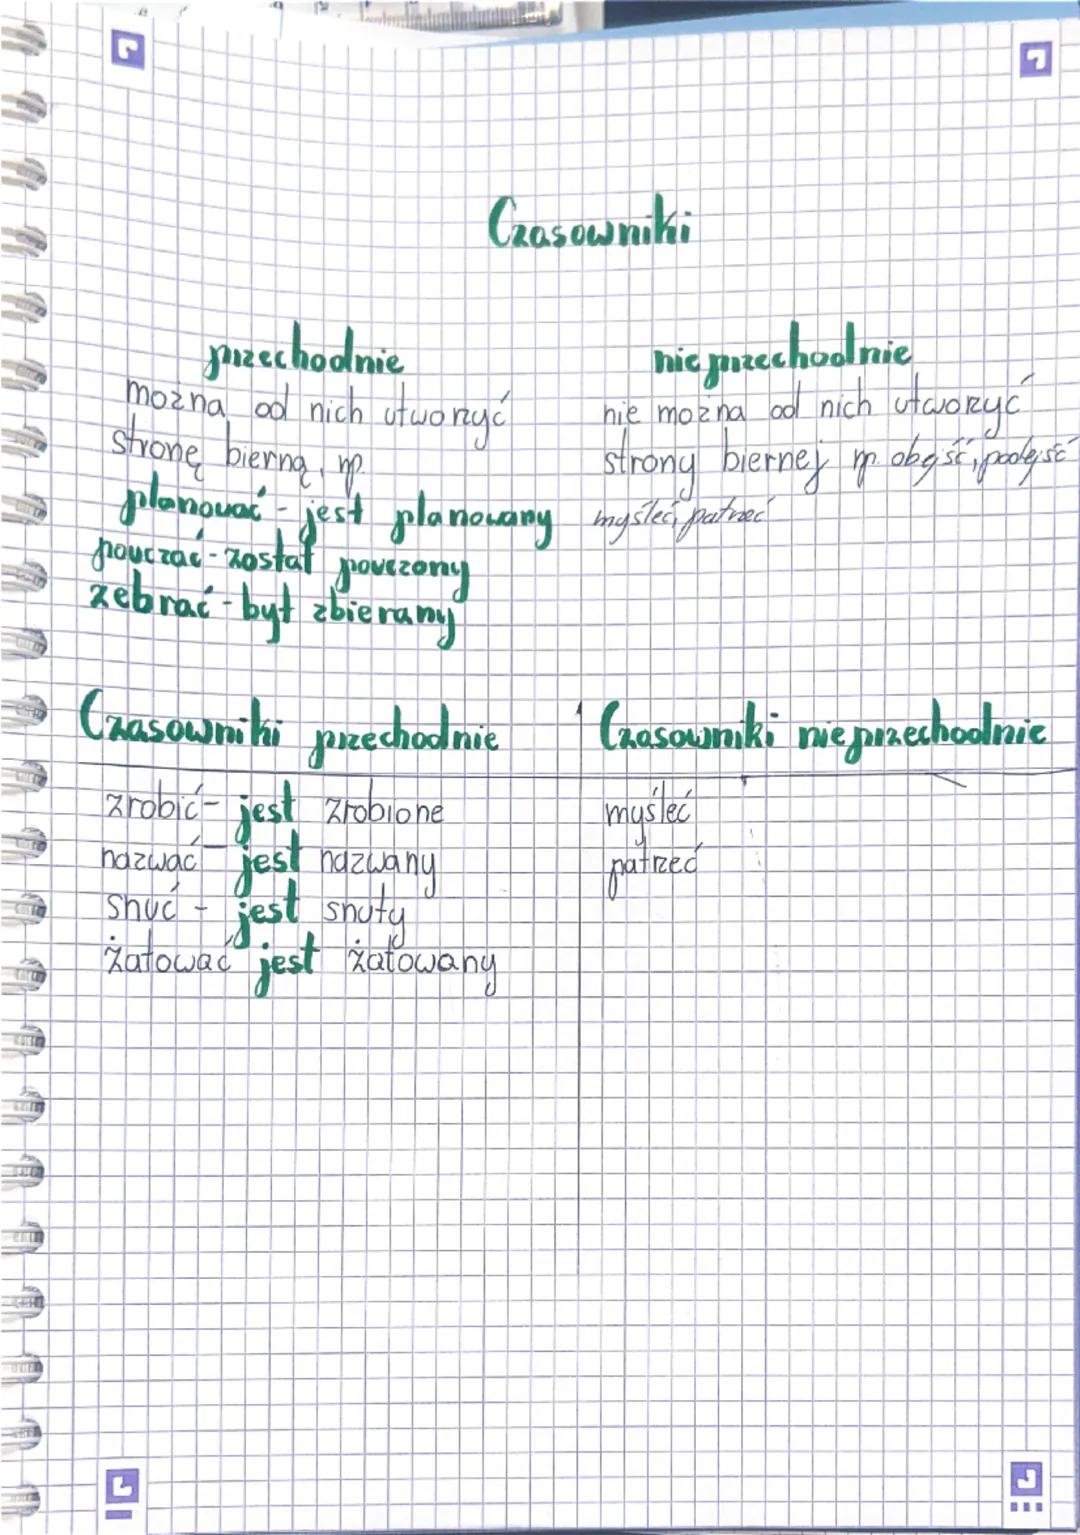 Czasowniki
przechodnie
można od nich utworzyć
stronę bierną, np.
planować - jest planowany
pouczać - został pouczony
zebrać - był zbierany
nieprzechodnie
nie można od nich utworzyć
strony biernej np. obejść, podejść
myśleć, patrzeć
Czasowniki przechodnie
zrobić - jest zrobione
nazwać - jest nazwany
snuć - jest snuty
żałować jest żałowany
Czasowniki nieprzechodnie
myśleć
patrzeć